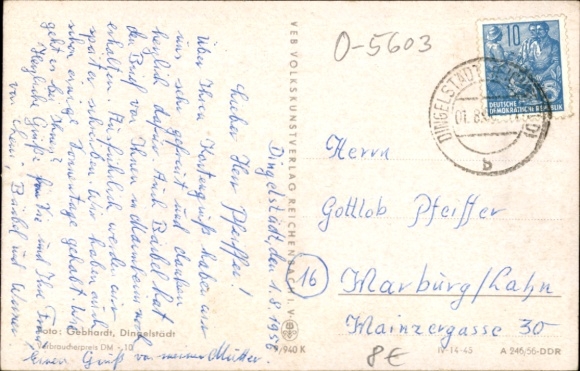 Dingelstädt, den 1.8.1956
Lieber Herr Pfeiffer!
Über Ihren Kartengruß haben wir
uns sehr gefreut und danken
herzlich dafür. Auch Bärbel hat
den Brief von Ihnen in
erhalten. Ausführlich werden wir
später schreiben. Wir haben auch
schon einige gehabt. Wie
geht es bei Ihnen?
Herzliche Grüße für Sie und Ihre Frau
von Ihrem Bärbel und Werner
Einen Gruß von meiner Mutter.
Foto: Gebhardt, Dingelstädt
Verbraucherpreis DM -10
VEB VOLKSKUNSTVERLAG REICHENBACH I. V.
9/940 K
O-5603
10
DEUTSCHE
DEMOKRATISCHE REPUBLIK
DINGELSTÄDT
01.8.
b
Herrn
Gottlob Pfeiffer
16
Marburg/Lahn
Mainzergasse 30
8€
IV-14-45
A 246/56-DDR